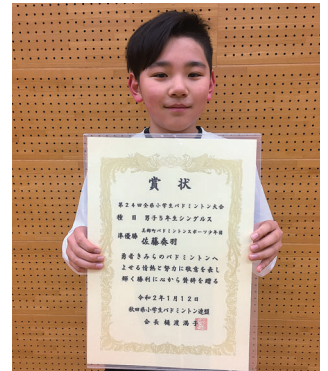 賞状
第24回全県小学生バドミントン大会
種目 男子5年生シングルス
美郷町バドミントンスポーツ少年団
準優勝 佐藤奏羽
勇者きみらのバドミントンへ
よせる情熱と努力に敬意を表し
輝く勝利に心から賛辞を贈る
令和2年1月12日
秋田県小学生バドミントン連盟
会長 樋渡満